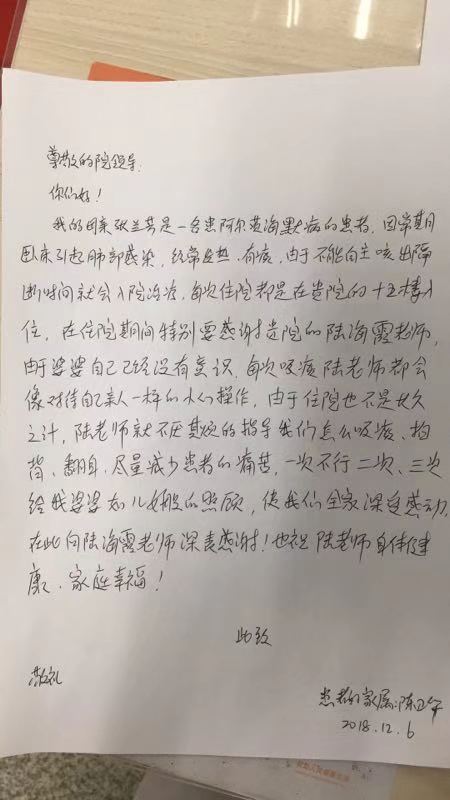 尊敬的院领导:
你们好!
我的母亲张兰英是一名患阿尔茨海默病的患者,因常期
卧床引起肺部感染,经常发热、有痰,由于不能自主咳出隔
断时间就会入院治疗,每次住院都是在贵院的十五楼入
位,在住院期间特别要感谢贵院的陆海霞老师,
由于婆婆自己已经没有意识,每次吸痰陆老师都会
像对待自己亲人一样的小心操作,由于住院也不是长久
之计,陆老师就不厌其烦的指导我们怎么吸痰、拍
背、翻身,尽量减少患者的痛苦,一次不行二次、三次
给我婆婆如儿女般的照顾,使我们全家深受感动,
在此向陆海霞老师深表感谢!也祝陆老师身体健
康、家庭幸福!
此致
敬礼
患者的家属:陈
2018.12.6